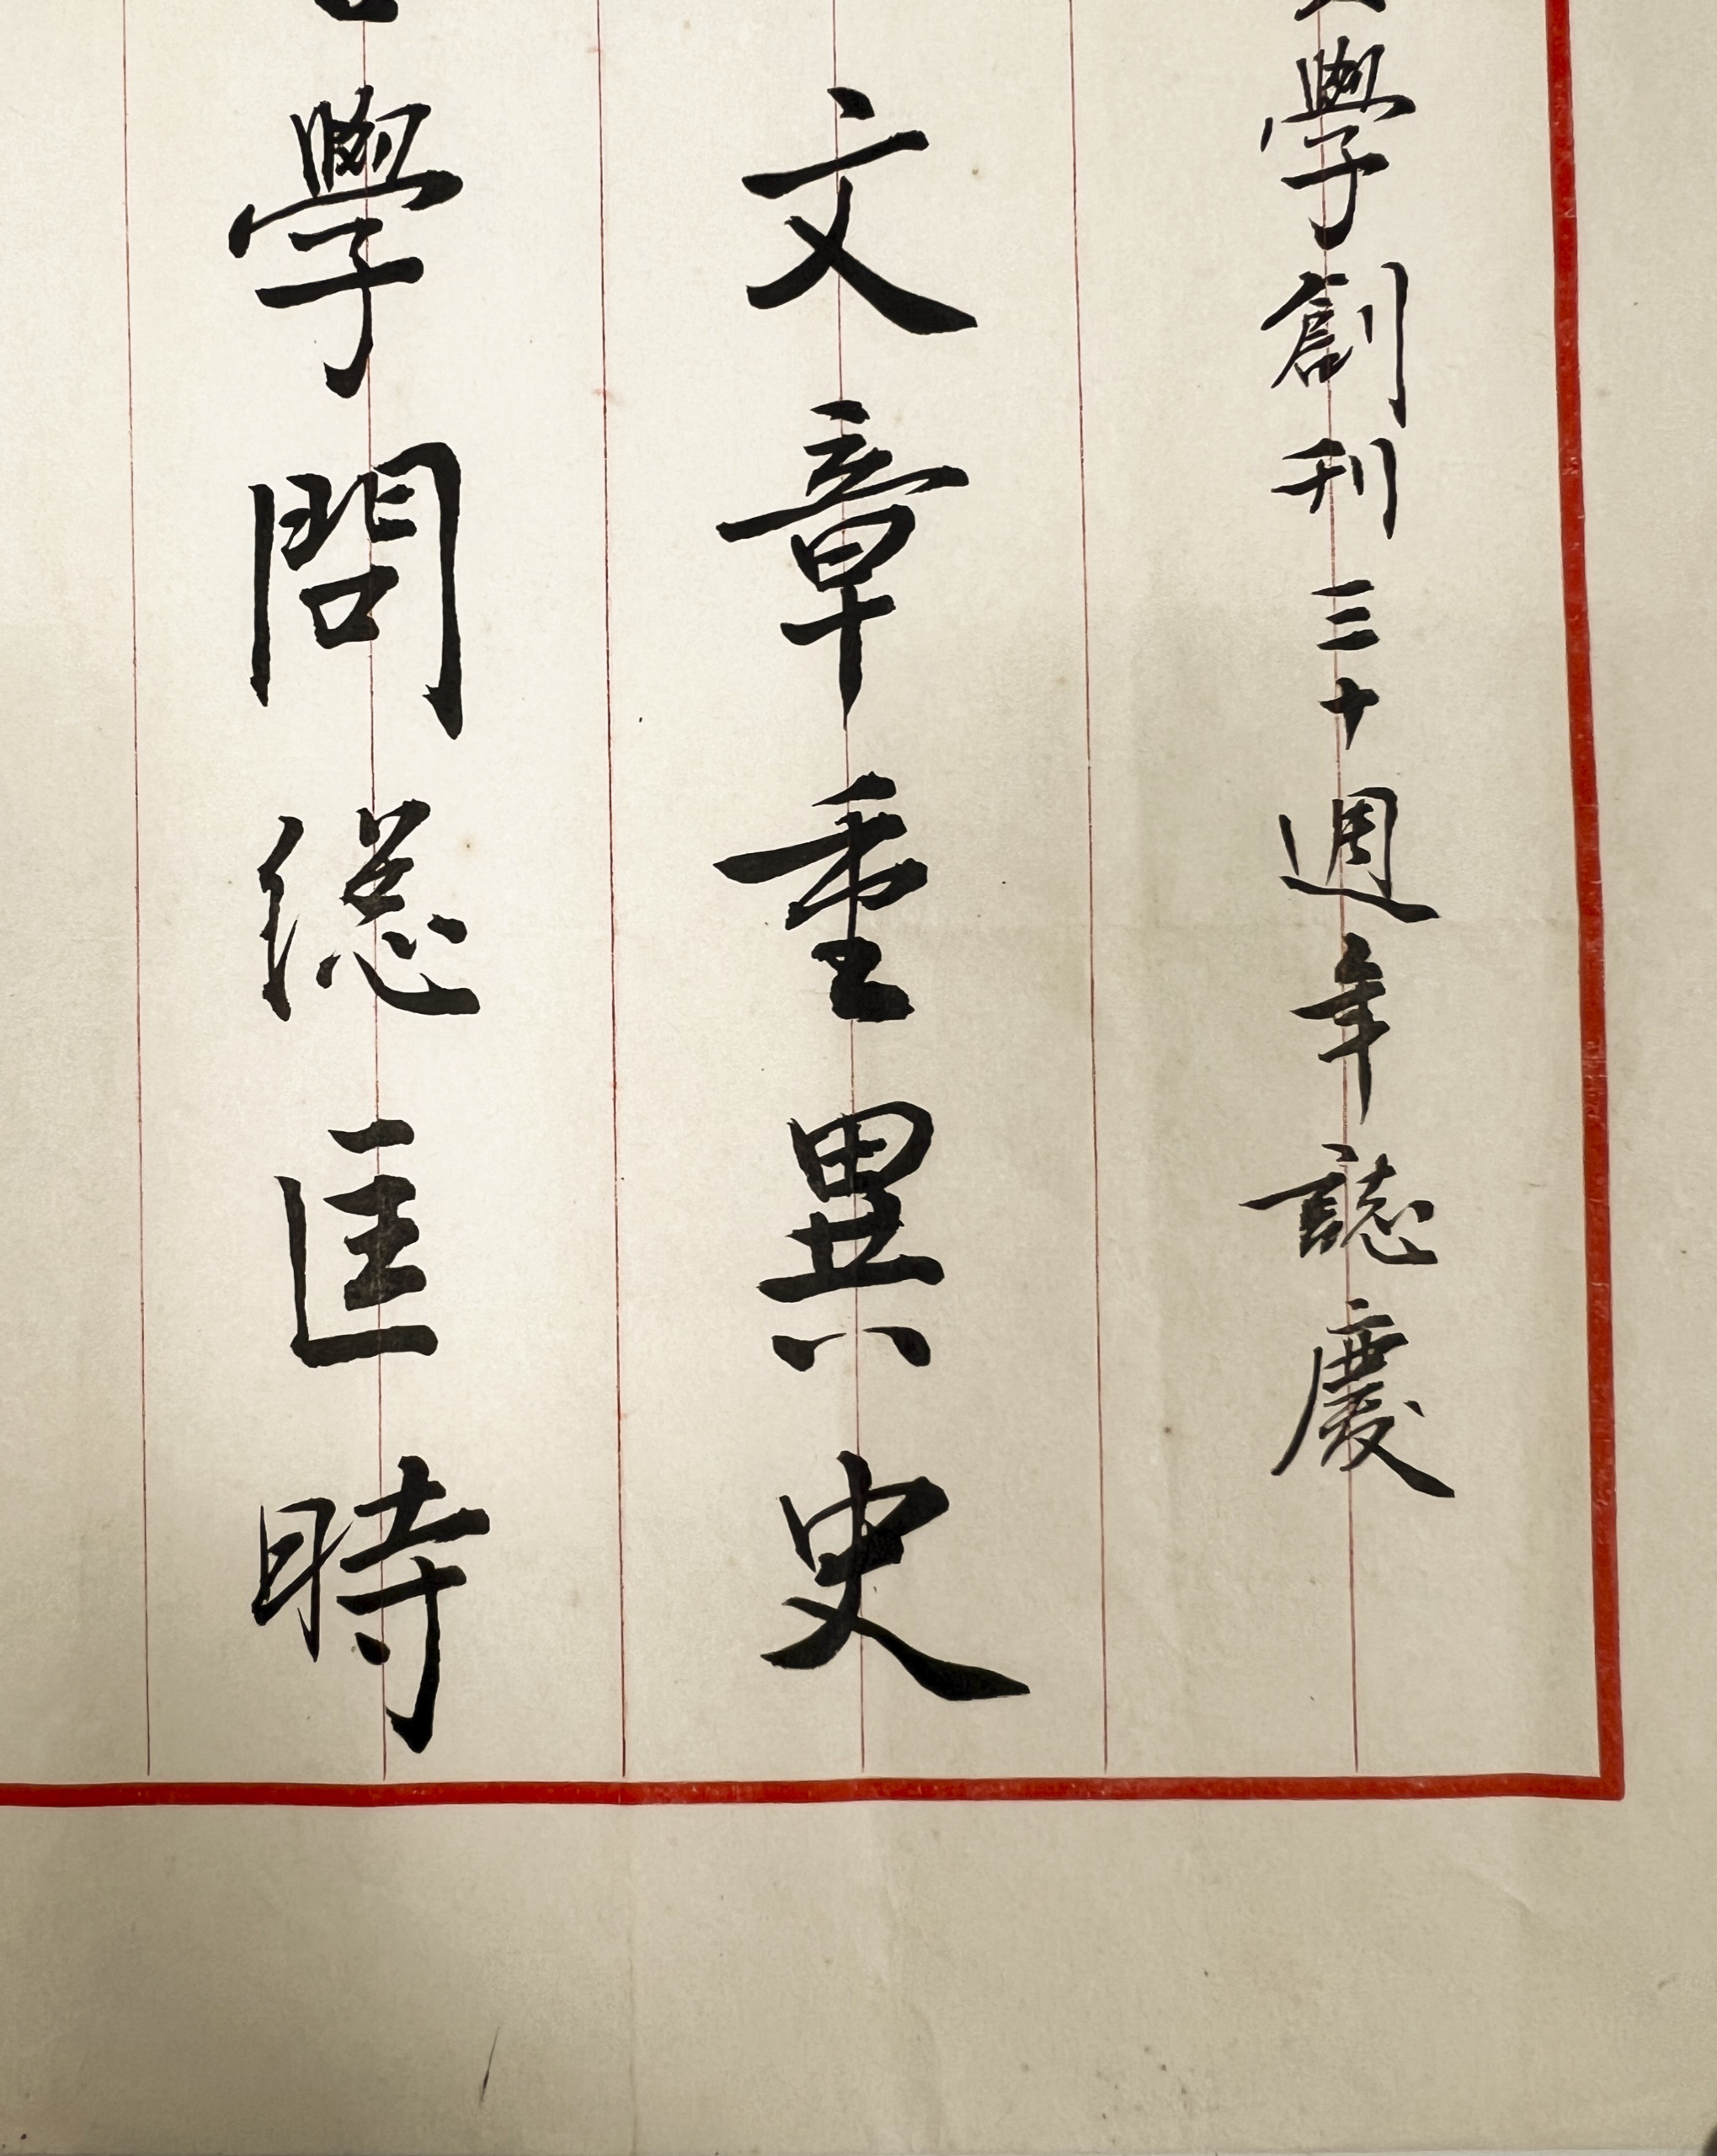 學創刊三十週年誌慶
文章重異史
學問總匡時